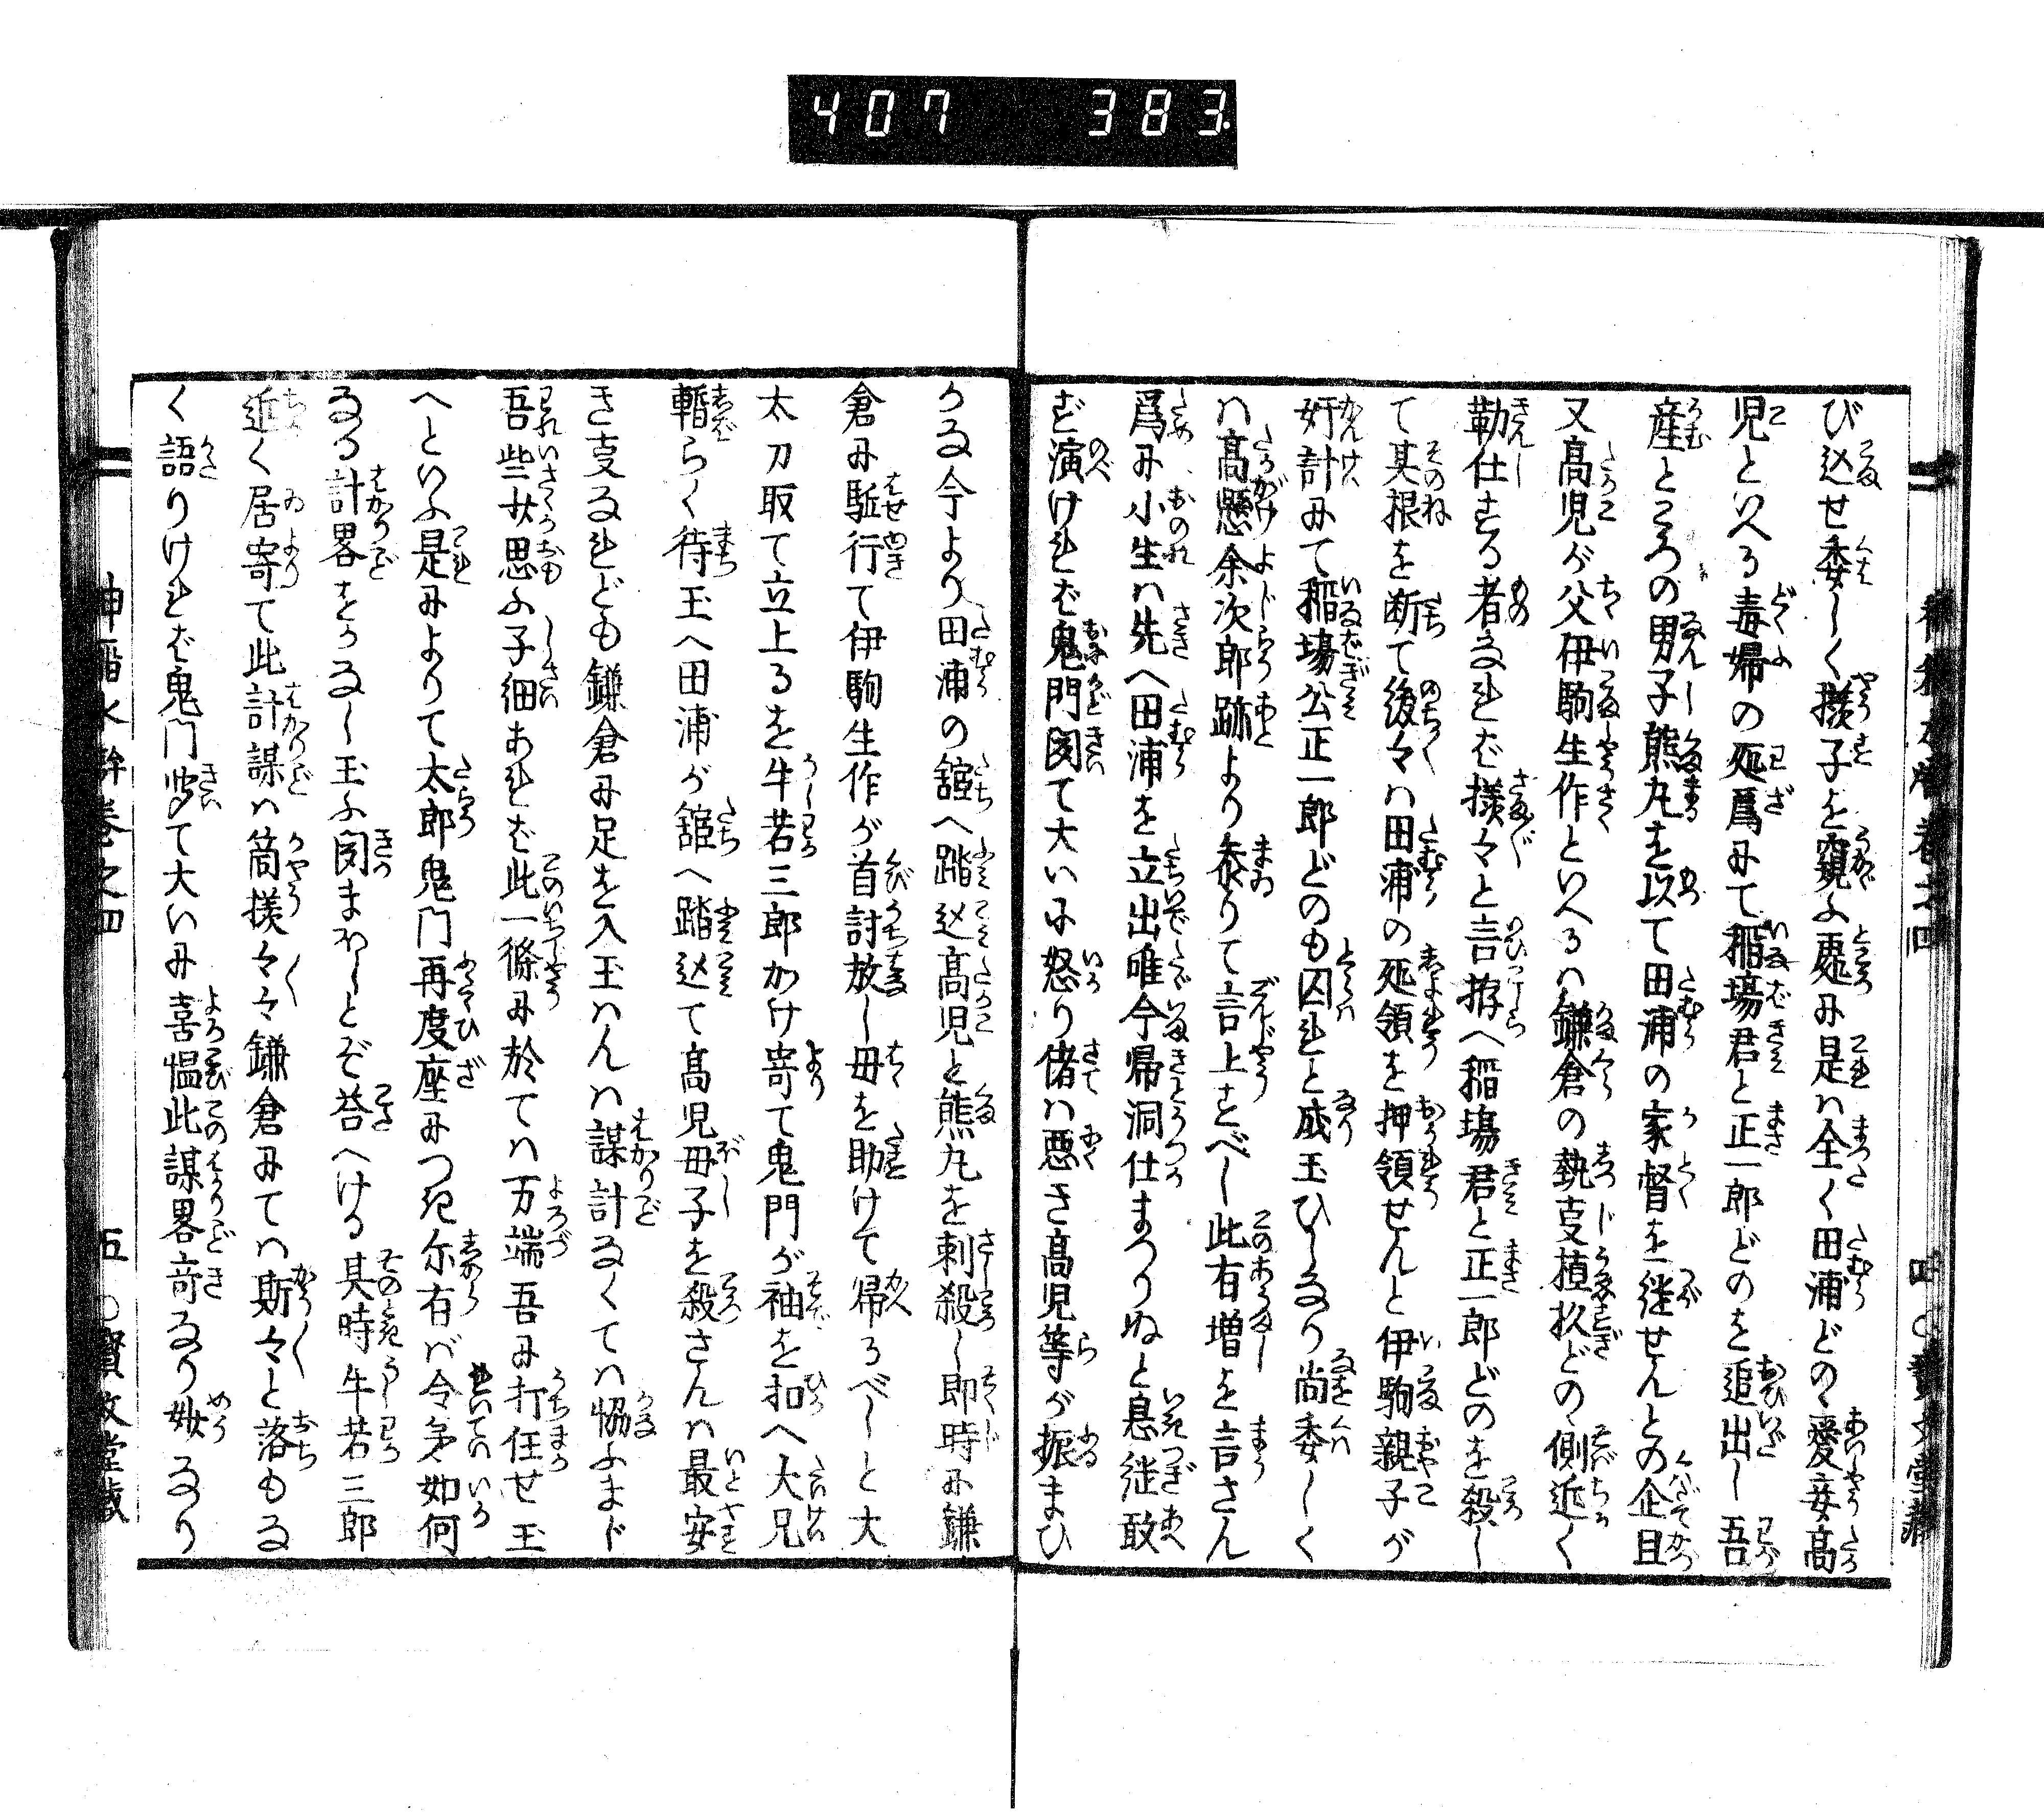 407 383.
び込せ委しく様子を窺ふ処に是ハ全く田浦どのゝ愛妾高
児といへる毒婦の所爲にて稲場君と正一郎どのを追出し吾
産ところの男子熊丸を以て田浦の家督を継せんとの企且
又高児が父伊駒生作といへるハ鎌倉の執事植杦どのゝ側近く
勤仕する者なれバ様々と言拵へ稲場君と正一郎どのを殺し
て其根を断て後々ハ田浦の所領を押領せんと伊駒親子が
奸計にて稲場公正一郎どのも囚れと成玉ひしなり尚委しく
ハ高懸余次郎跡より参りて言上すべし此有増を言さん
爲に小生ハ先へ田浦を立出唯今帰洞仕まつりぬと息継敢
ず演けれバ鬼門聞て大いに怒り偖ハ悪き高児等が振まひ
かな今より田浦の舘へ踏込高児と熊丸を刺殺し即時に鎌
倉に駈行て伊駒生作が首討放し母を助けて帰るべしと大
太刀取て立上るを牛若三郎かけ寄て鬼門が袖を扣へ大兄
暫らく待玉へ田浦が舘へ踏込て高児母子を殺さんハ最安
き事なれども鎌倉に足を入玉はんハ謀計なくてハ協ふまじ
吾些サ思ふ子細あれバ此一條に於てハ万端吾に打任せ玉
へといふ是によりて太郎鬼門再度座につき尓有バ令弟如何
なる計畧をかなし玉ふ聞まほしとぞ答へける其時牛若三郎
近く居寄て此計謀ハ箇様々々鎌倉にてハ斯々と落もな
く語りけれバ鬼門聴て大いに喜愠此謀畧奇なり妙なり
神稲水滸巻之四
五